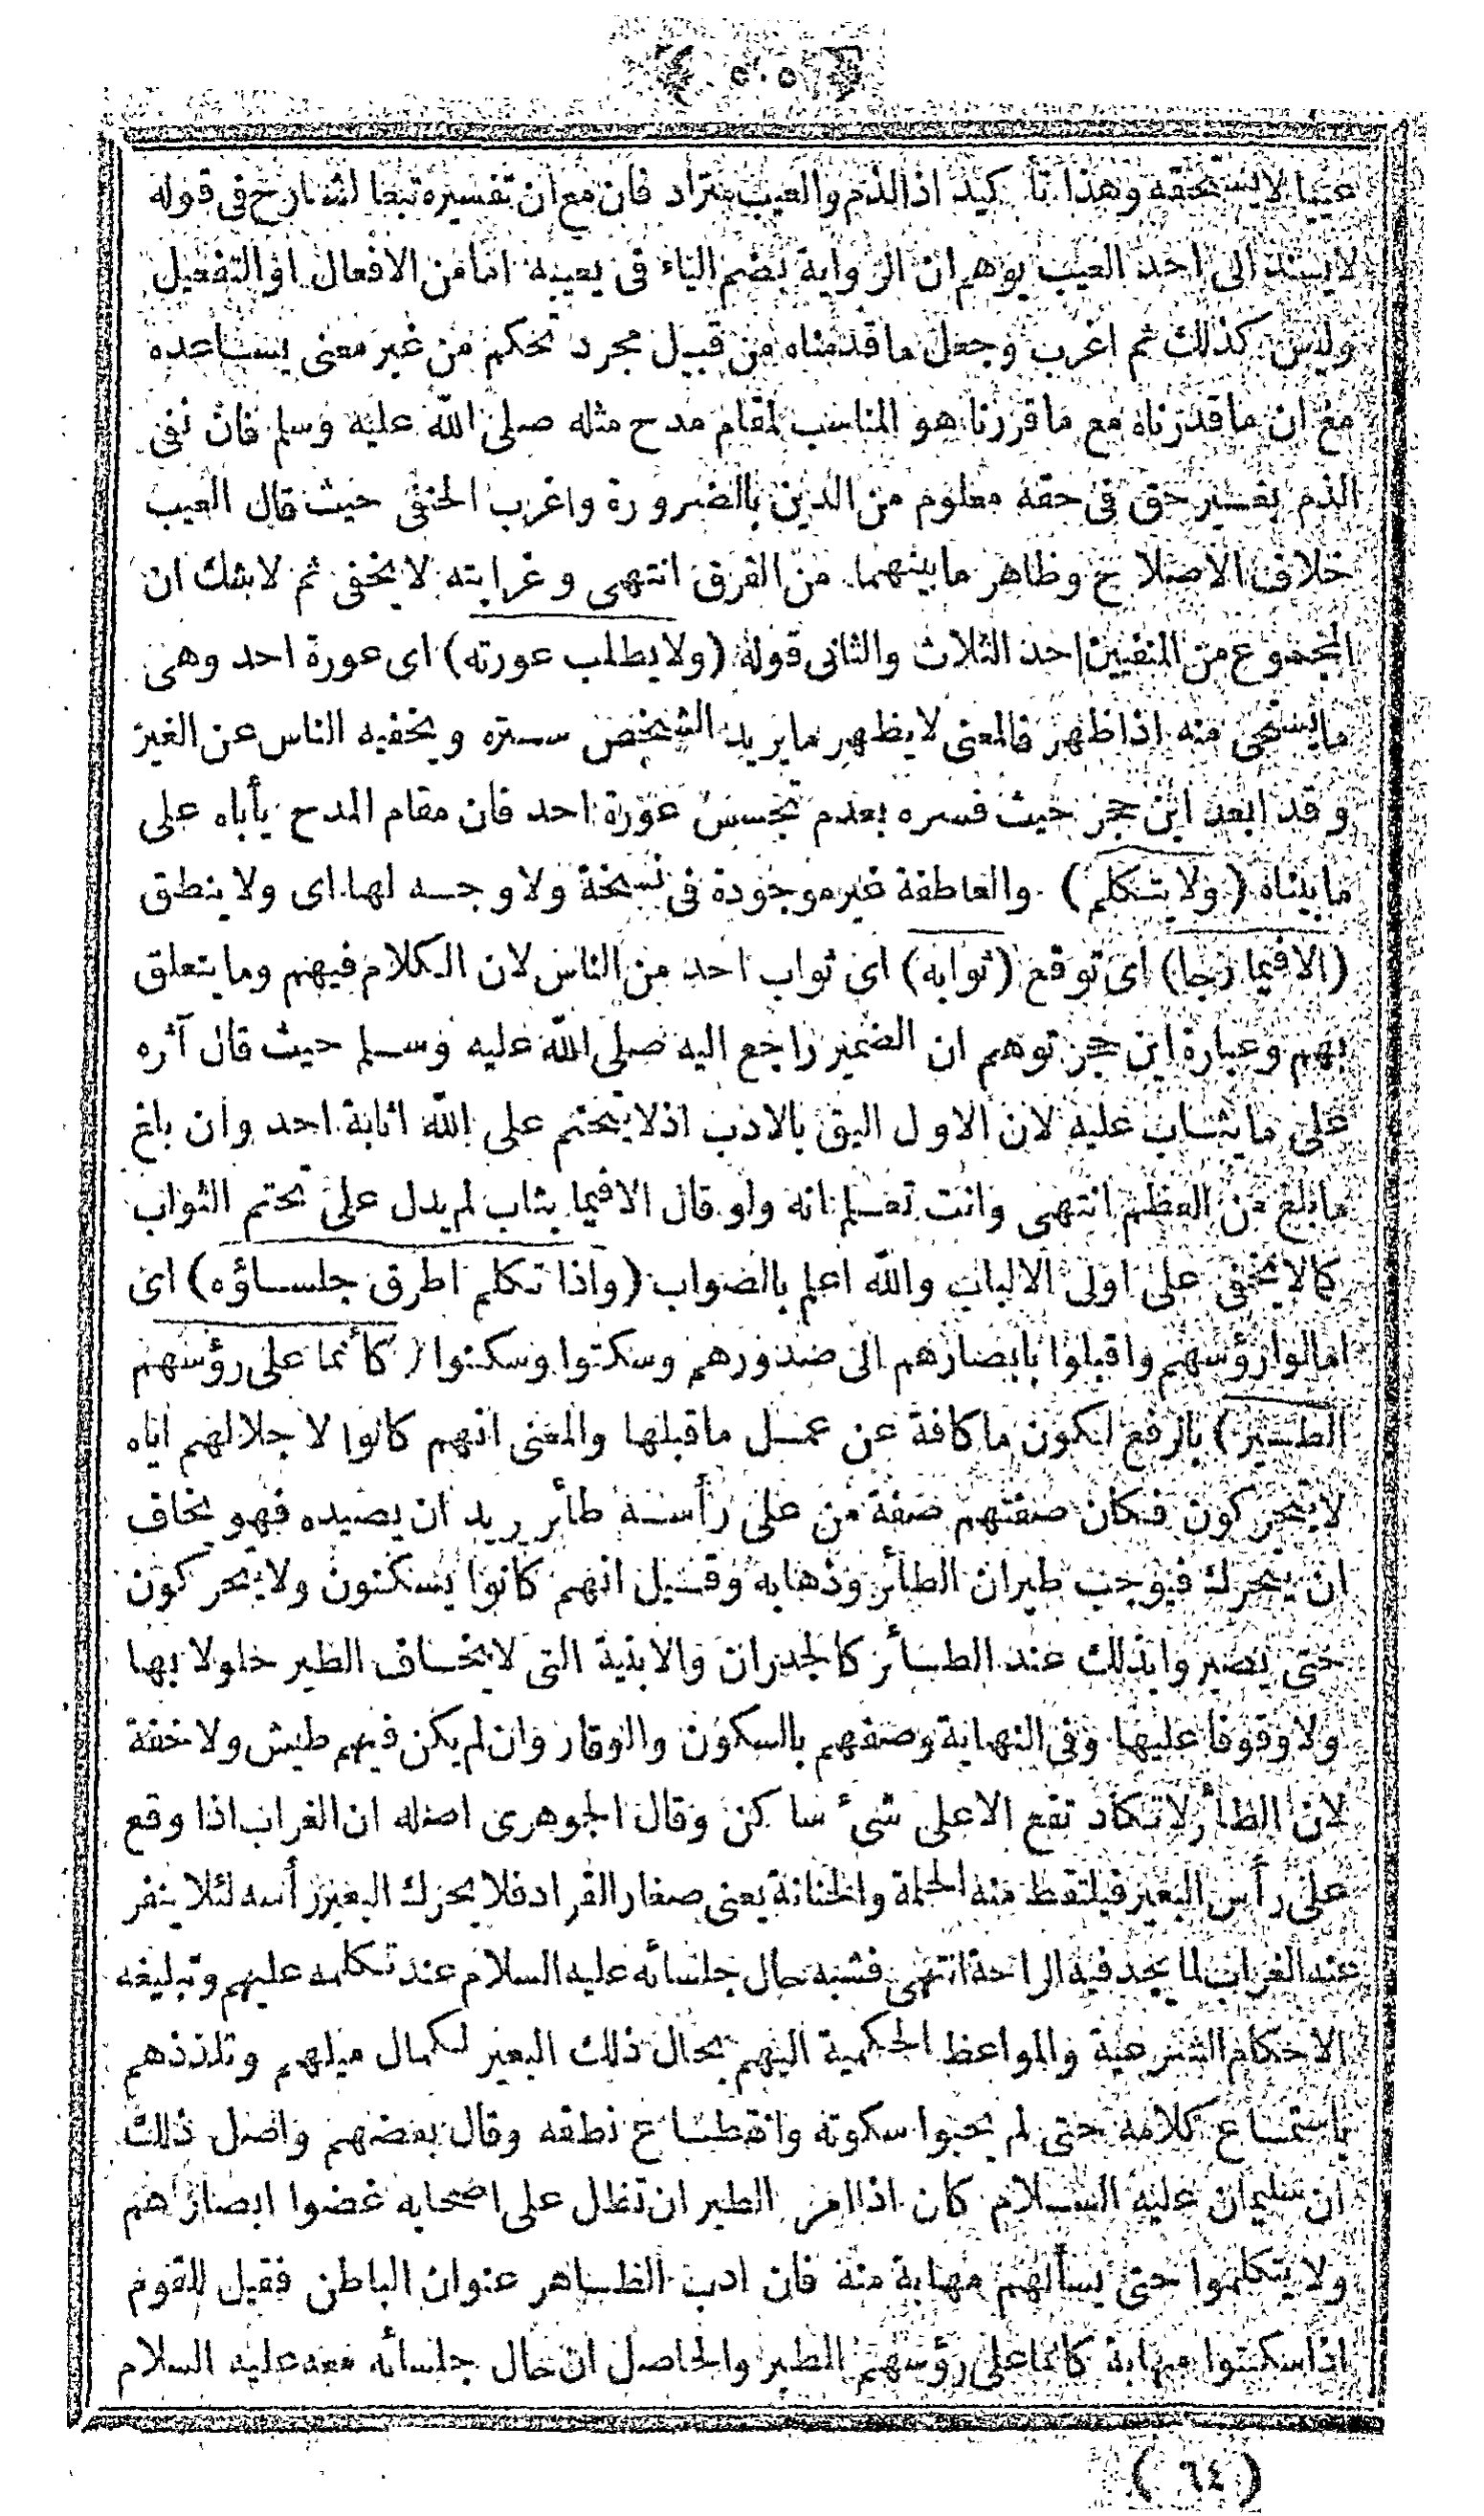 ﴿ ٥٠٥ ﴾
عيبا لا يستحقه وهذا تأكيد اذ الذم والعيب مترادفان مع ان تفسيره تبعا لشارح فى قوله
لا يسند الى احد العيب يوهم ان الرواية بضم الياء فى يعيبه اما من الافعال او التفعيل
وليس كذلك ثم اغرب وجعل ما قدمناه من قبيل مجرد تحكم من غير معنى يساعده
مع ان ما قدرناه مع ما قررنا هو المناسب لمقام مدح مثله صلى الله عليه وسلم فان نفى
الذم بغير حق فى حقه معلوم من الدين بالضرورة واغرب الحنفى حيث قال العيب
خلاف الاصلاح وظاهر ما بينهما من الفرق انتهى وغرابته لا يخفى ثم لا شك ان
المجموع من المنفيين احد الثلاث والثانى قوله (ولا يطلب عورته) اى عورة احد وهى
ما يستحى منه اذا ظهر فالمعنى لا يظهر ما يريد الشخص ستره ويخفيه الناس عن الغير
وقد ابعد ابن حجر حيث فسره بعدم تجسس عورة احد فان مقام المدح يأباه على
ما بيناه (ولا يتكلم) والعاطفة غير موجودة فى نسخة ولا وجه لها اى ولا ينطق
(الا فيما رجا) اى توقع (ثوابه) اى ثواب احد من الناس لان الكلام فيهم وما يتعلق
بهم وعبارة ابن حجر توهم ان الضمير راجع اليه صلى الله عليه وسلم حيث قال آثره
على ما يثاب عليه لان الاول اليق بالادب اذ لا يتحتم على الله اثابة احد وان بلغ
ما بلغ من العظم انتهى وانت تعلم انه ولو قال الا فيما يثاب لم يدل على تحتم الثواب
كما لا يخفى على اولى الالباب والله اعلم بالصواب (واذا تكلم اطرق جلساؤه) اى
امالوا رؤسهم واقبلوا بابصارهم الى صدورهم وسكتوا وسكنوا (كأنما على رؤسهم
الطير) بالرفع لكون ما كافة عن عمل ما قبلها والمعنى انهم كانوا لاجلالهم اياه
لا يتحركون فكان صفتهم صفة من على رأسه طائر يريد ان يصيده فهو يخاف
ان يتحرك فيوجب طيران الطائر وذهابه وقيل انهم كانوا يسكنون ولا يتحركون
حتى يصيروا بذلك عند الطائر كالجدران والابنية التى لا يخاف الطير حلولا بها
ولا وقوفا عليها وفى النهاية وصفهم بالسكون والوقار وان لم يكن فيهم طيش ولا خفة
لان الطائر لا تكاد تقع الا على شئ ساكن وقال الجوهرى اصله ان الغراب اذا وقع
على رأس البعير فيلتقط منه الحلمة والحنانة يعنى صغار القراد فلا يحرك البعير رأسه لئلا ينفر
عنه الغراب لما يجد فيه الراحة انتهى فشبه حال جلسائه عليه السلام عند تكلمه عليهم وتبليغه
الاحكام الشرعية والمواعظ الحكمية اليهم بحال ذلك البعير لكمال ميلهم وتلذذهم
باستماع كلامه حتى لم يحبوا سكوته وانقطاع نطقه وقال بعضهم واصل ذلك
ان سليمان عليه السلام كان اذا امر الطير ان تظل على اصحابه غضوا ابصارهم
ولا يتكلموا حتى يسألهم مهابة منه فان ادب الظاهر عنوان الباطن فقيل للقوم
اذا سكتوا مهابة كانما على رؤسهم الطير والحاصل ان حال جلسائه معه عليه السلام
(٦٤)